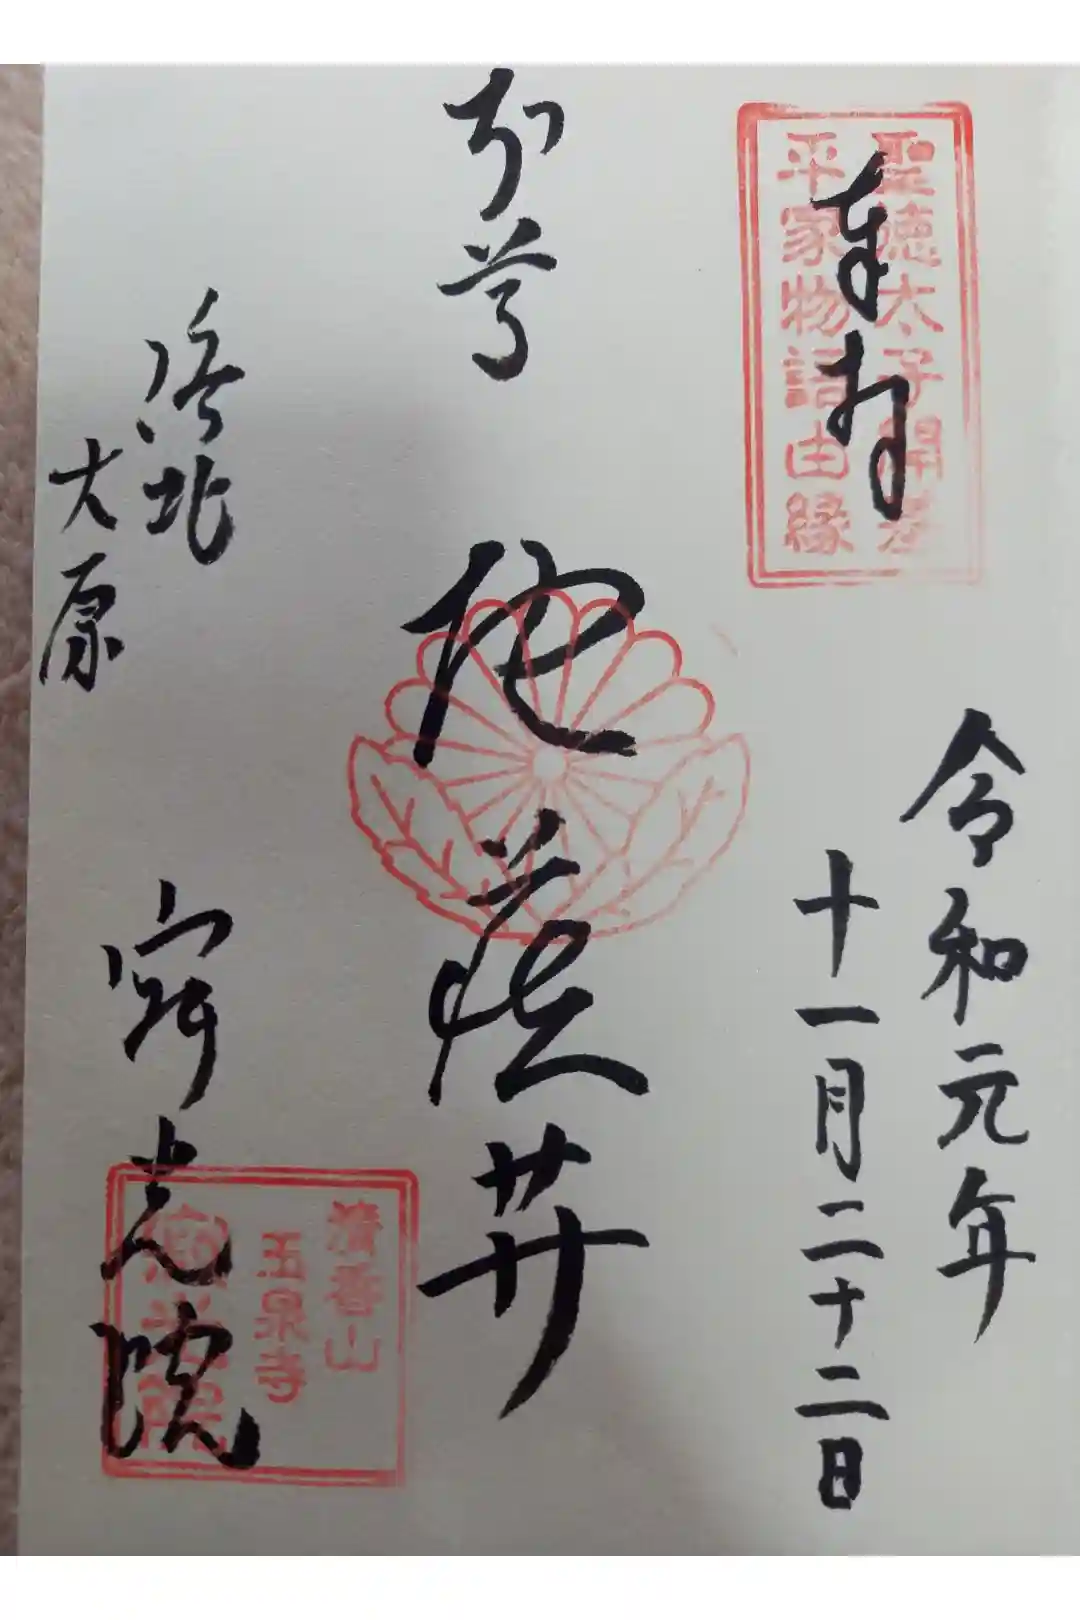 奉拝
聖徳太子開基
平家物語由縁
令和元年
十一月二十二日
本尊
地蔵菩
洛北
大原
寂光院
清香山
玉泉寺
寂光院